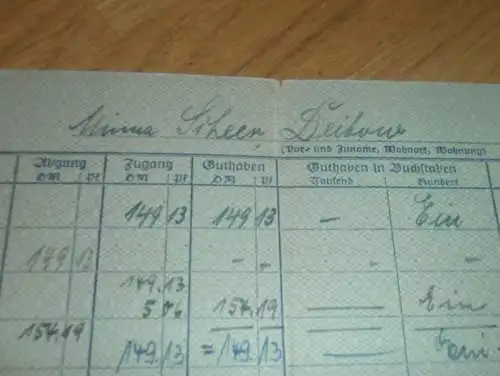 Minna Scheer, Deibow
(Vor- und Zuname, Wohnort, Wohnung)
Abgang Zugang Guthaben Guthaben in Buchstaben
DM Pf DM Pf DM Pf Tausend Hundert
149 13 149 13 — Ein
149 13 - - - -
149.13
5 06 154 19 — Ein
154.19
149.13 = 149.13 — Ein